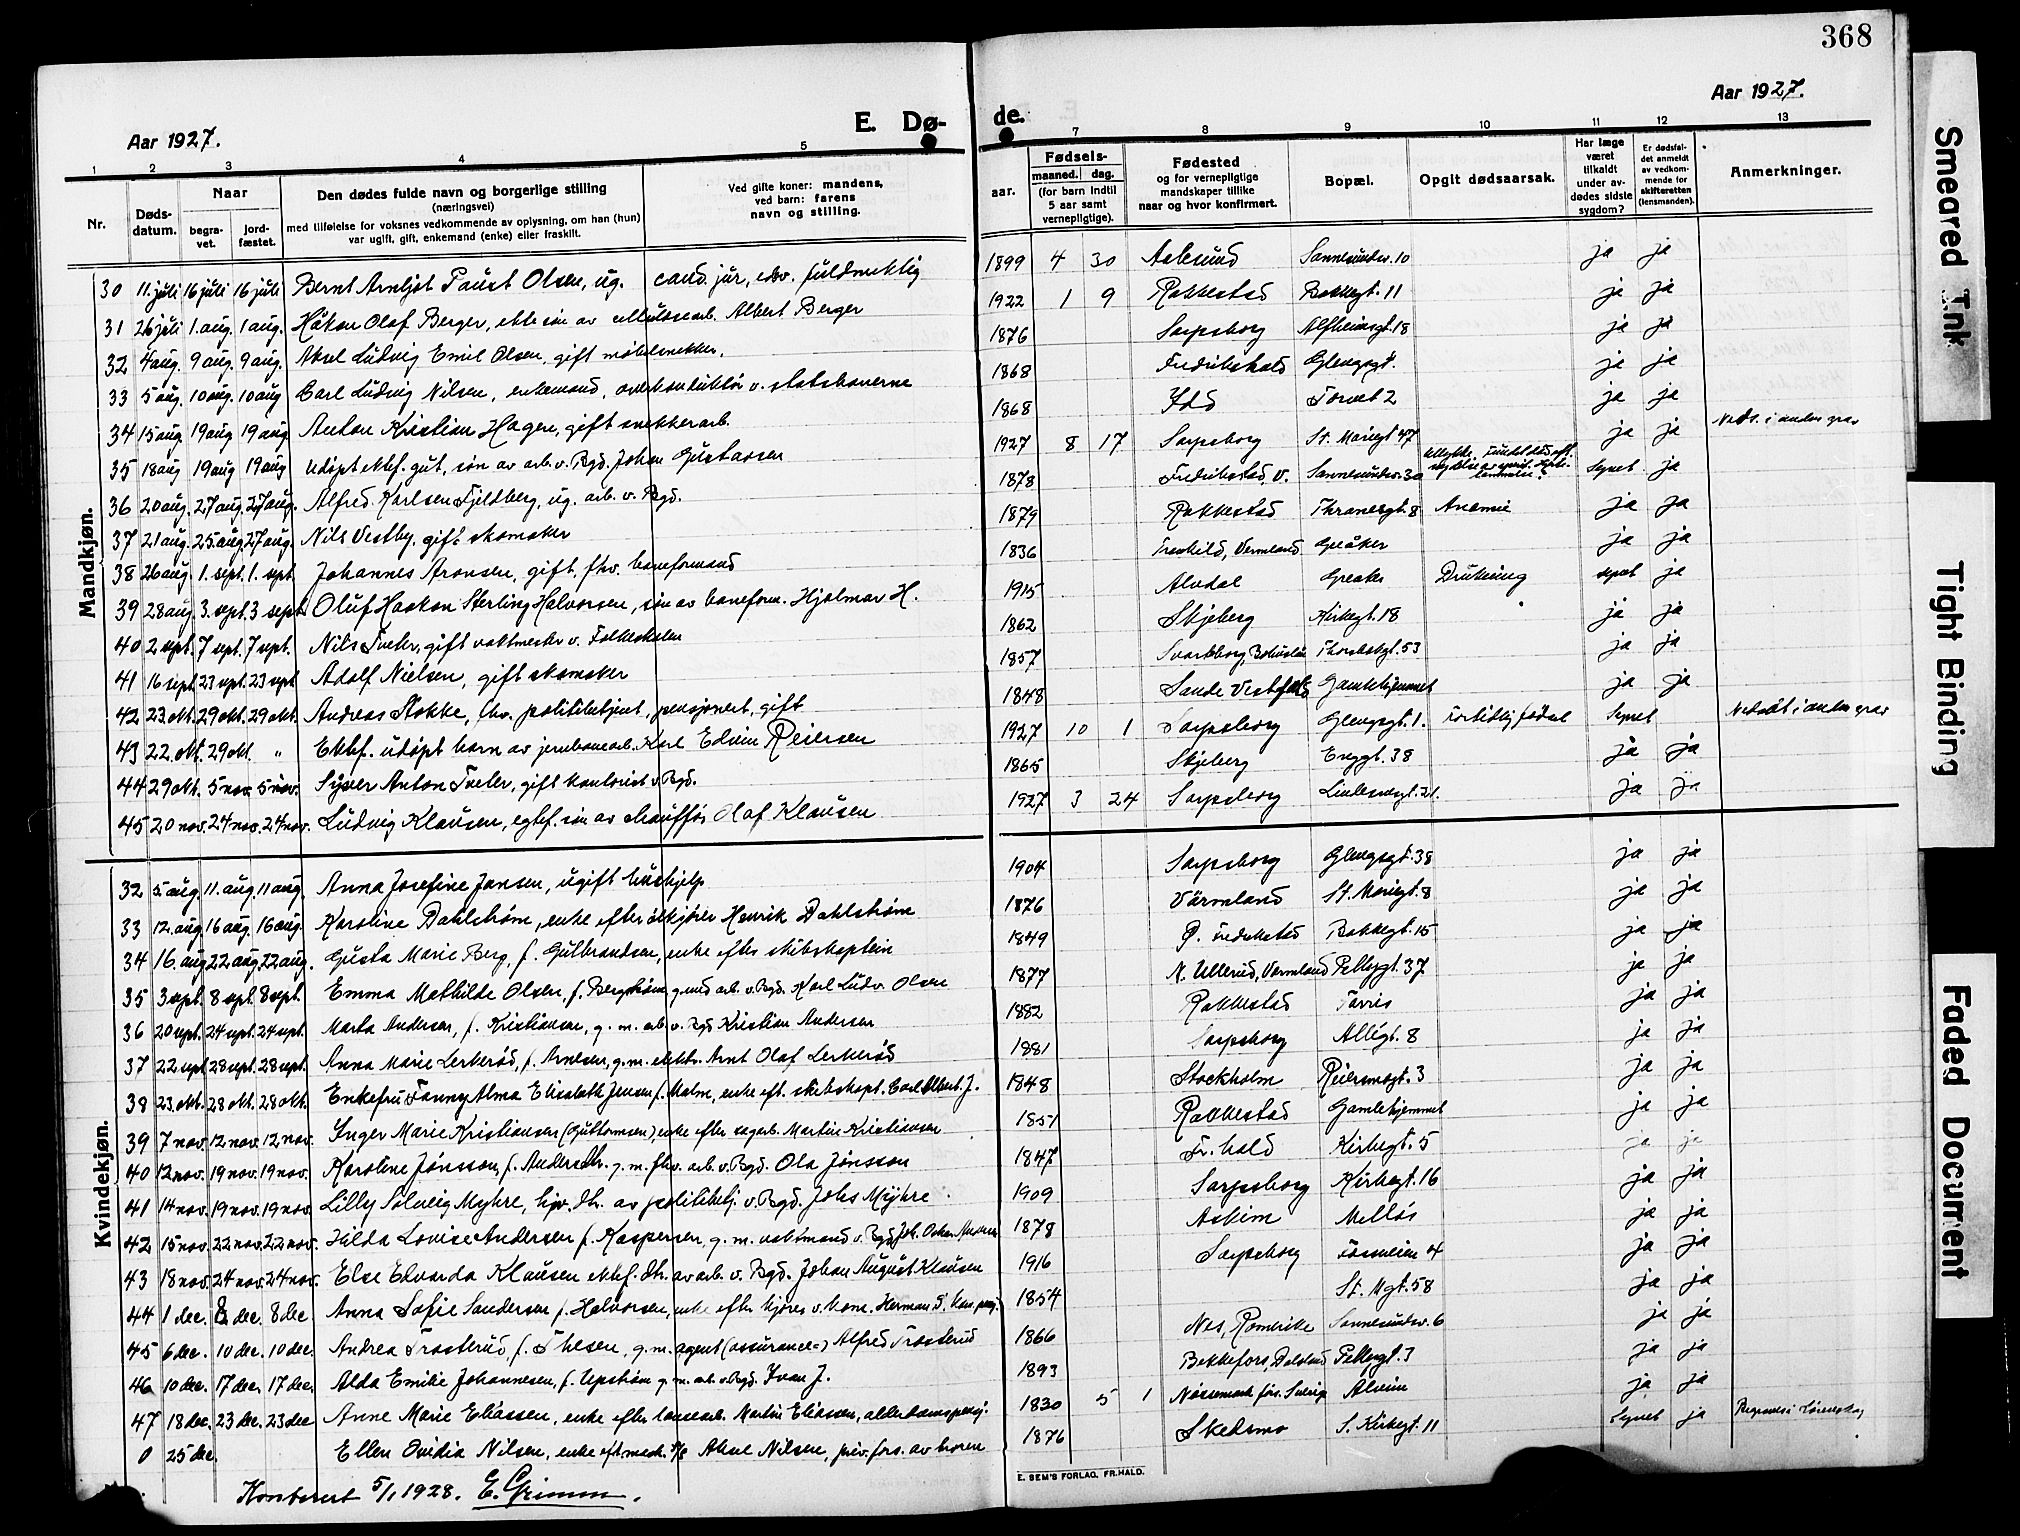 368
Aar 1927.
E. Dø-
de.
Aar 1927.
1 2 3 4 5 7 8 9 10 11 12 13
Nr.
Døds-
datum.
Naar
begra-
vet.
jord-
fæstet.
Den dødes fulde navn og borgerlige stilling
(næringsvei)
med tilføielse for voksnes vedkommende av oplysning, om han (hun)
var ugift, gift, enkemand (enke) eller fraskilt.
Ved gifte koner: mandens,
ved barn: farens
navn og stilling.
aar.
Fødsels-
maaned. dag.
(for barn indtil
5 aar samt
vernepligtige).
Fødested
og for vernepligtige
mandskaper tillike
naar og hvor konfirmert.
Bopæl.
Opgit dødsaarsak.
Har læge
været
tilkaldt
under av-
dødes sidste
sygdom?
Er dødsfal-
det anmeldt
av vedkom-
mende for
skifteretten
(lensmanden).
Anmerkninger.
Mandkjøn.
30 11. juli 16 juli 16 juli Bernt Arnljot Faust Olsen, ug. cand. jur, fuldmektig 1899 4 30 Aalesund Sannesundsv. 10 ja ja
31 26 juli 1. aug. 1 aug. Håkon Olaf Berger, ekte søn av cellulosearb. Albert Berger 1922 1 9 Rakkestad Bakkegt. 11 ja ja
32 4 aug. 9 aug. 9 aug. Aksel Ludvig Emil Olsen, gift møbelsnekker. 1876 Sarpsborg Alfheimsgt. 18 ja ja
33 5 aug. 10 aug. 10 aug Carl Ludvig Nilsen, enkemand, overkonduktør v. statsbanerne 1868 Fredrikshald Glengsgt. ja ja
34 15 aug. 19 aug 19 aug. Anton Kristian Hagen, gift snekkerarb. 1868 Idd Torvet 2 ja ja
35 18 aug 19 aug 19 aug Udøpt ektef. gut, søn av arb. v. Bgd. Johan Gustavsen 1927 8 17 Sarpsborg St. Mariegt 47 ja ja Neds. i anden grav
36 20 aug. 27 aug. 27 aug. Alfred Karlsen Fjeldberg, ug. arb. v. Bgd. 1878 Fredrikstad V. Sannesundsv. 30 Synet ja
37 21 aug. 25. aug. 27 aug. Nils Vestby, gift skomaker 1879 Rakkestad Thranesgt. 8 Anemie ja ja
38 26 aug. 1. sept. 1. sept. Johannes Aronsen, gift, fhv. baneformand 1836 Vermland Greåker ja ja
39 28 aug 3. sept. 3 sept. Oluf Haakon Sterling Halvorsen, søn av baneform. Hjalmar H. 1915 Alvdal Greaker Drukning synet ja
40 2 sept. 7 sept. 7 sept. Nils Tveter, gift vaktmester v. Folkeskolen 1862 Skjeberg Kirkegt. 18 ja ja
41 16 sept. 23 sept. 23 sept Adolf Nielsen, gift skomaker 1857 Svarteborg, Bohuslän Thorsbekgt. 53 ja ja
42 23. okt. 29 okt. 29 okt. Andreas Stokke, fhv. politibetjent, pensjonert, gift 1848 Sande Vestfold Gamlehjemmet ja ja
43 22. okt. 29 okt. " Ektef. udøpt barn av jernbanearb. Karl Edvin Reiersen 1927 10 1 Sarpsborg Glengsgt. 1. Fortidlig fødsel Synet Nedsat i anden grav
44 29 okt. 5 nov. 5 nov. Syver Anton Tveter, gift kontorist v. Bgd. 1865 Skjeberg Enggt. 38 ja ja
45 20 nov. 24 nov. 24 nov. Ludvig Klausen, egtef. søn av chauffør Olaf Klausen 1927 3 24 Sarpsborg Lindemsgt. 21. ja ja
Kvindekjøn.
32 5 aug. 11. aug. 11 aug. Anna Josefine Jansen, ugift hushjelp 1904 Sarpsborg Glengsgt. 38 ja ja
33 12. aug. 16 aug. 16 aug. Karoline Dahlstrøm, enke efter ølkjører Henrik Dahlstrøm 1876 Värmland St. Mariegt. 8 ja ja
34 16. aug. 22 aug. 22 aug. Gusta Marie Berg, f. Gulbrandsen, enke efter skibskaptein 1849 Ø. Fredrikstad Bakkegt. 15 ja ja
35 3 sept. 8 sept. 8 sept. Emma Mathilde Olsen, f. Bergstrøm, g. med arb. v. Bgd. Karl Ludv. Olsen 1877 N. Ullerud, Vermland Pellygt. 37 ja ja
36 20 sept. 24 sept. 24 sept. Marta Andersen, f. Kristiansen, g. m. arb. v. Bgd Kristian Andersen 1882 Rakkestad Tarris ja ja
37 22 sept 28 sept. 28 sept. Anna Marie Lerkerød, f. Arnesen, g. m. elektr. Arnt Olaf Lerkerød 1881 Sarpsborg Allégt. 8 ja ja
38 23. okt. 28 okt. 28 okt. Enkefru Fanny Alma Elisabeth Jensen f. Malm, enke eft. skibskapt. Carl Albert J. 1848 Stockholm Reiersensgt. 3 ja ja
39 7 nov. 12 nov. 12 nov. Inger Marie Kristiansen (Guttormsen), enke efter sagarb. Martin Kristiansen 1851 Rakkestad Gamlehjemmet ja ja
40 12 nov. 19 nov. 19 nov. Karoline Jönsson, f. Andersdtr. g. m. fhv. arb. v. Bgd. Ola Jönsson 1847 Fr. hald Kirkegt. 5 ja ja
41 14 nov. 19 nov. 19 nov. Lilly Solveig Myhre, hjv. dtr. av politibetj. v. Bgd. Johs Myhre 1909 Sarpsborg Kirkegt. 16 ja ja
42 15 nov. 22 nov. 22 nov. Hilda Lovise Andersen f. Kaspersen, g. m. vaktmand v. Bgd. Joh. Oskar Andersen 1878 Askim Melløs ja ja
43 18 nov. 24 nov. 24 nov. Else Edvarda Klausen ektef. dtr. av arb. v. Bgd. Johan August Klausen 1916 Sarpsborg Fosseveien 4 ja ja
44 1 dec. 8 dec. 8 dec. Anna Sofie Sandersen f. Halvorsen, enke efter kjører v. kom. Herman S. 1854 St. Mgt. 58 ja ja
45 6 dec. 10 dec. 10 dec. Andrea Trosterud f. Thesen, g. m. agent (assurance-) Alfred Trosterud 1866 Nes, Romerike Sannesundsv. 6 ja ja
46 10 dec. 17 dec. 17 dec. Alda Emilie Johannesen, f. Upstrøm g. m. arb. v. Bgd. Ivan J. 1893 Bekkefors, Dalsland Pellygt. 3 ja ja
47 18 dec. 23 dec. 23 dec Anne Marie Eliassen, enke efter løsearb. Martin Eliassen, alderdomspensj. 1830 5 1 Nøssemark förs. Sverige Alvim ja ja
0 25 dec. Ellen Ovidia Nilsen, enke eft. mech. Aksel Nilsen, priv. fors. av broren 1876 Skedsmo S. Kirkegt. 11 Synet ja Begravet i Lørenskog
Konferert 5/1 1928. E. Grimm.
E. SEM'S FORLAG, FR.HALD.
Smeared Ink
Tight Binding
Faded Document